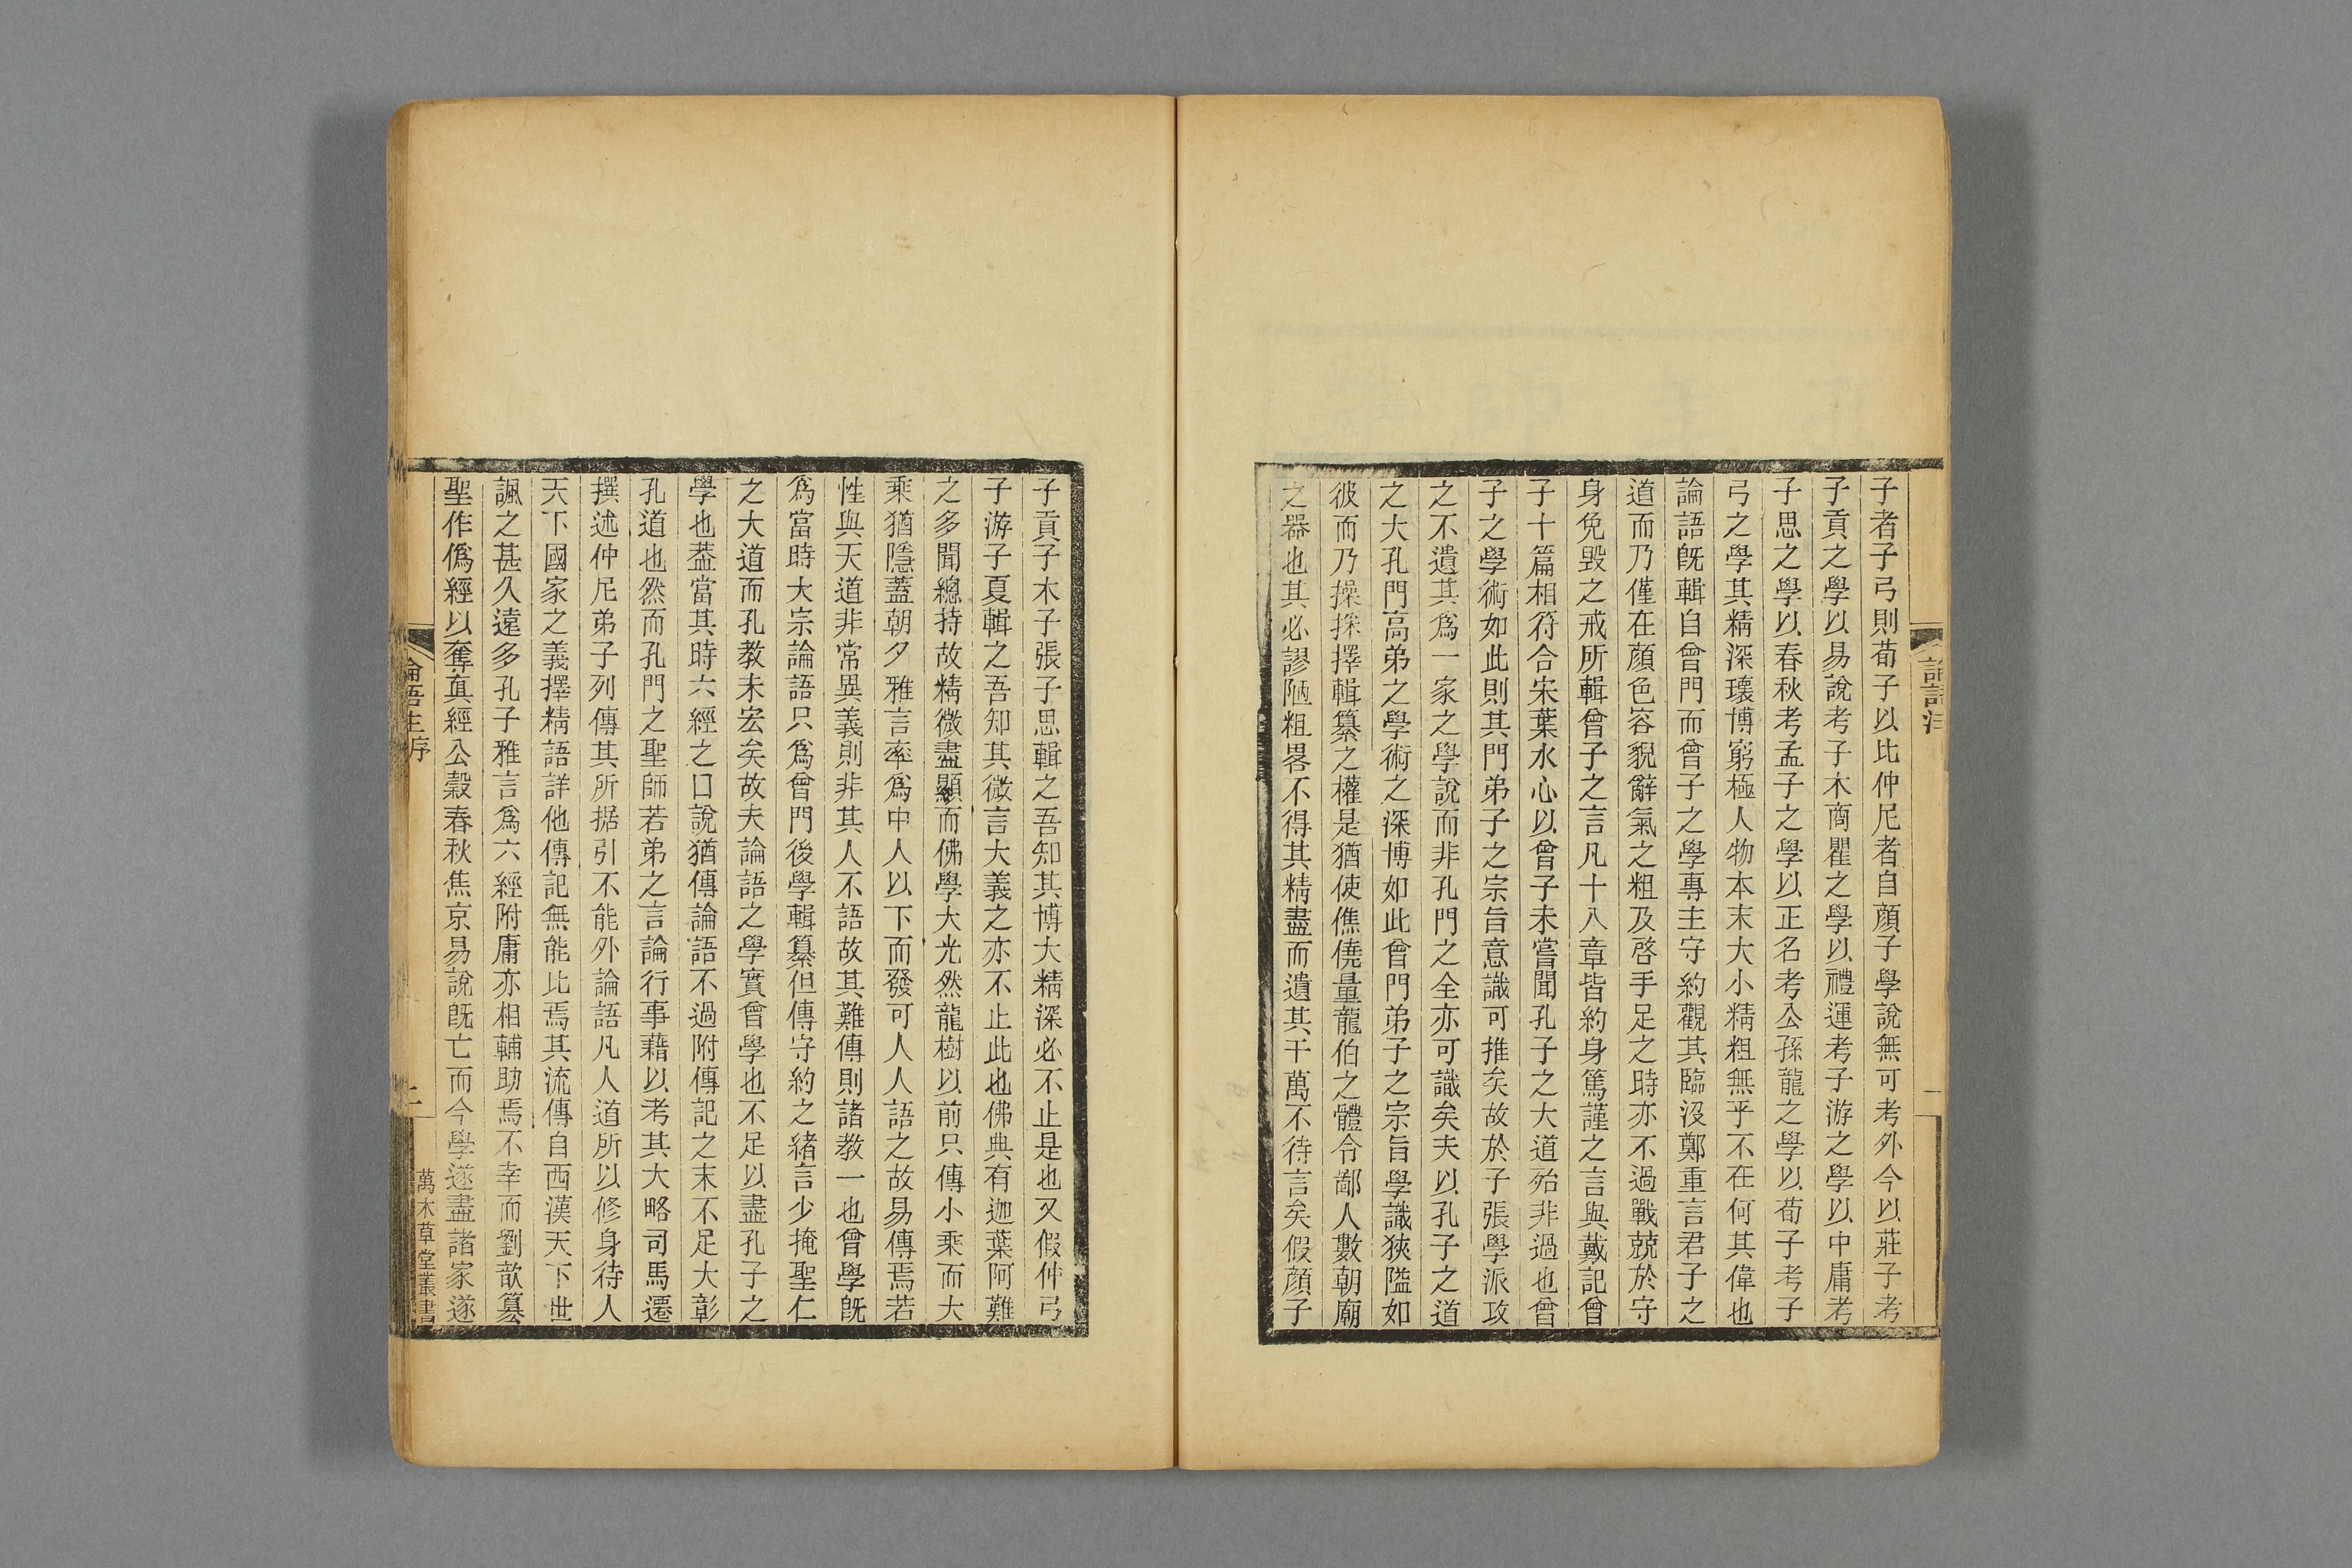 論語注
一
子者子弓則荀子以比仲尼者自顏子學說無可考外今以莊子考
子貢之學以易說考子木商瞿之學以禮運考子游之學以中庸考
子思之學以春秋考孟子之學以正名考公孫龍之學以荀子考子
弓之學其精深瓌博窮極人物本末大小精粗無乎不在何其偉也
論語旣輯自曾門而曾子之學專主守約觀其臨沒鄭重言君子之
道而乃僅在顏色容貌辭氣之粗及啓手足之時亦不過戰兢於守
身免毀之戒所輯曾子之言凡十八章皆約身篤謹之言與戴記曾
子十篇相符合宋葉水心以曾子未嘗聞孔子之大道殆非過也曾
子之學術如此則其門弟子之宗旨意識可推矣故於子張學派攻
之不遺其爲一家之學說而非孔門之全亦可識矣夫以孔子之道
之大孔門高弟之學術之深博如此曾門弟子之宗旨學識狹隘如
彼而乃操採擇輯纂之權是猶使僬僥量龍伯之體令鄙人數朝廟
之器也其必謬陋粗畧不得其精盡而遺其千萬不待言矣假顏子
子貢子木子張子思輯之吾知其博大精深必不止是也又假仲弓
子游子夏輯之吾知其微言大義之亦不止此也佛典有迦葉阿難
之多聞總持故精微盡顯而佛學大光然龍樹以前只傳小乘而大
乘猶隱蓋朝夕雅言率爲中人以下而發可人人語之故易傳焉若
性與天道非常異義則非其人不語故其難傳則諸教一也曾學旣
爲當時大宗論語只爲曾門後學輯纂但傳守約之緒言少掩聖仁
之大道而孔教未宏矣故夫論語之學實曾學也不足以盡孔子之
學也葢當其時六經之口說猶傳論語不過附傳記之末不足大彰
孔道也然而孔門之聖師若弟之言論行事藉以考其大略司馬遷
撰述仲尼弟子列傳其所据引不能外論語凡人道所以修身待人
天下國家之義擇精語詳他傳記無能比焉其流傳自西漢天下世
諷之甚久遠多孔子雅言爲六經附庸亦相輔助焉不幸而劉歆簒
聖作僞經以奪眞經公穀春秋焦京易說旣亡而今學遂盡諸家遂
論語注序
二
萬木草堂叢書